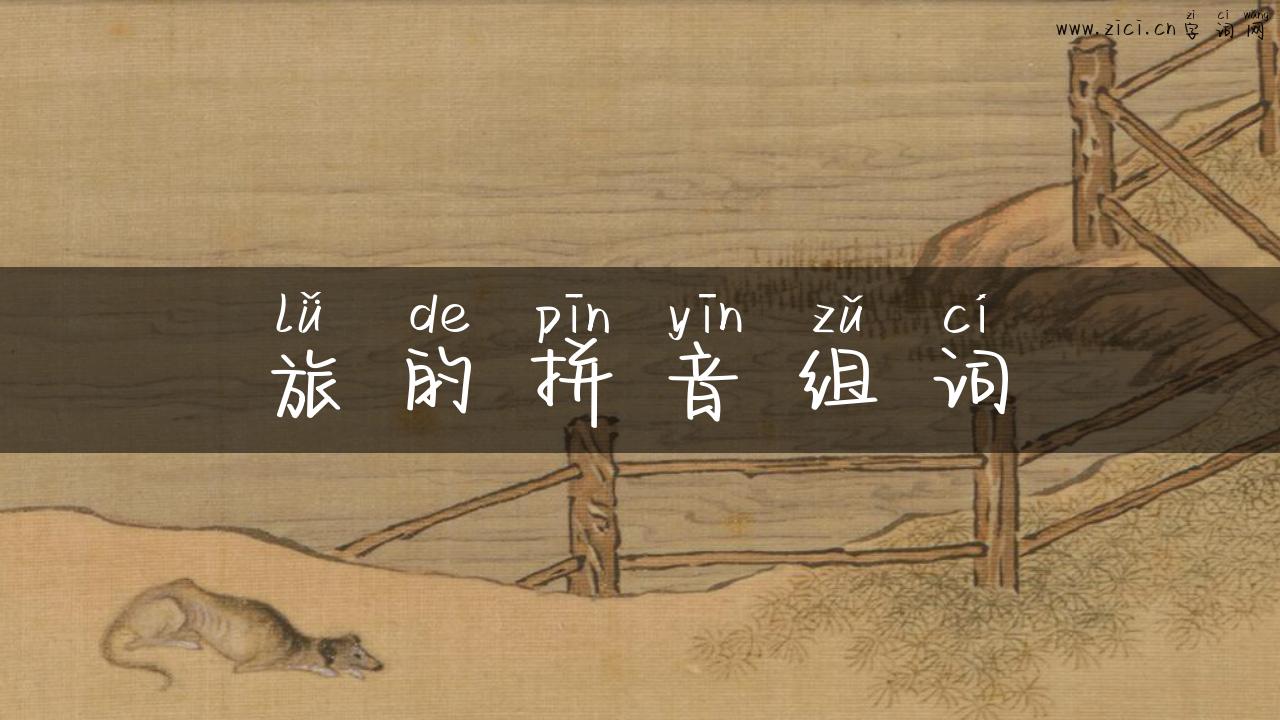 zi ci wang
www.zici.cn 字词网
lǚ de pīn yīn zǔ cí
旅的拼音组词